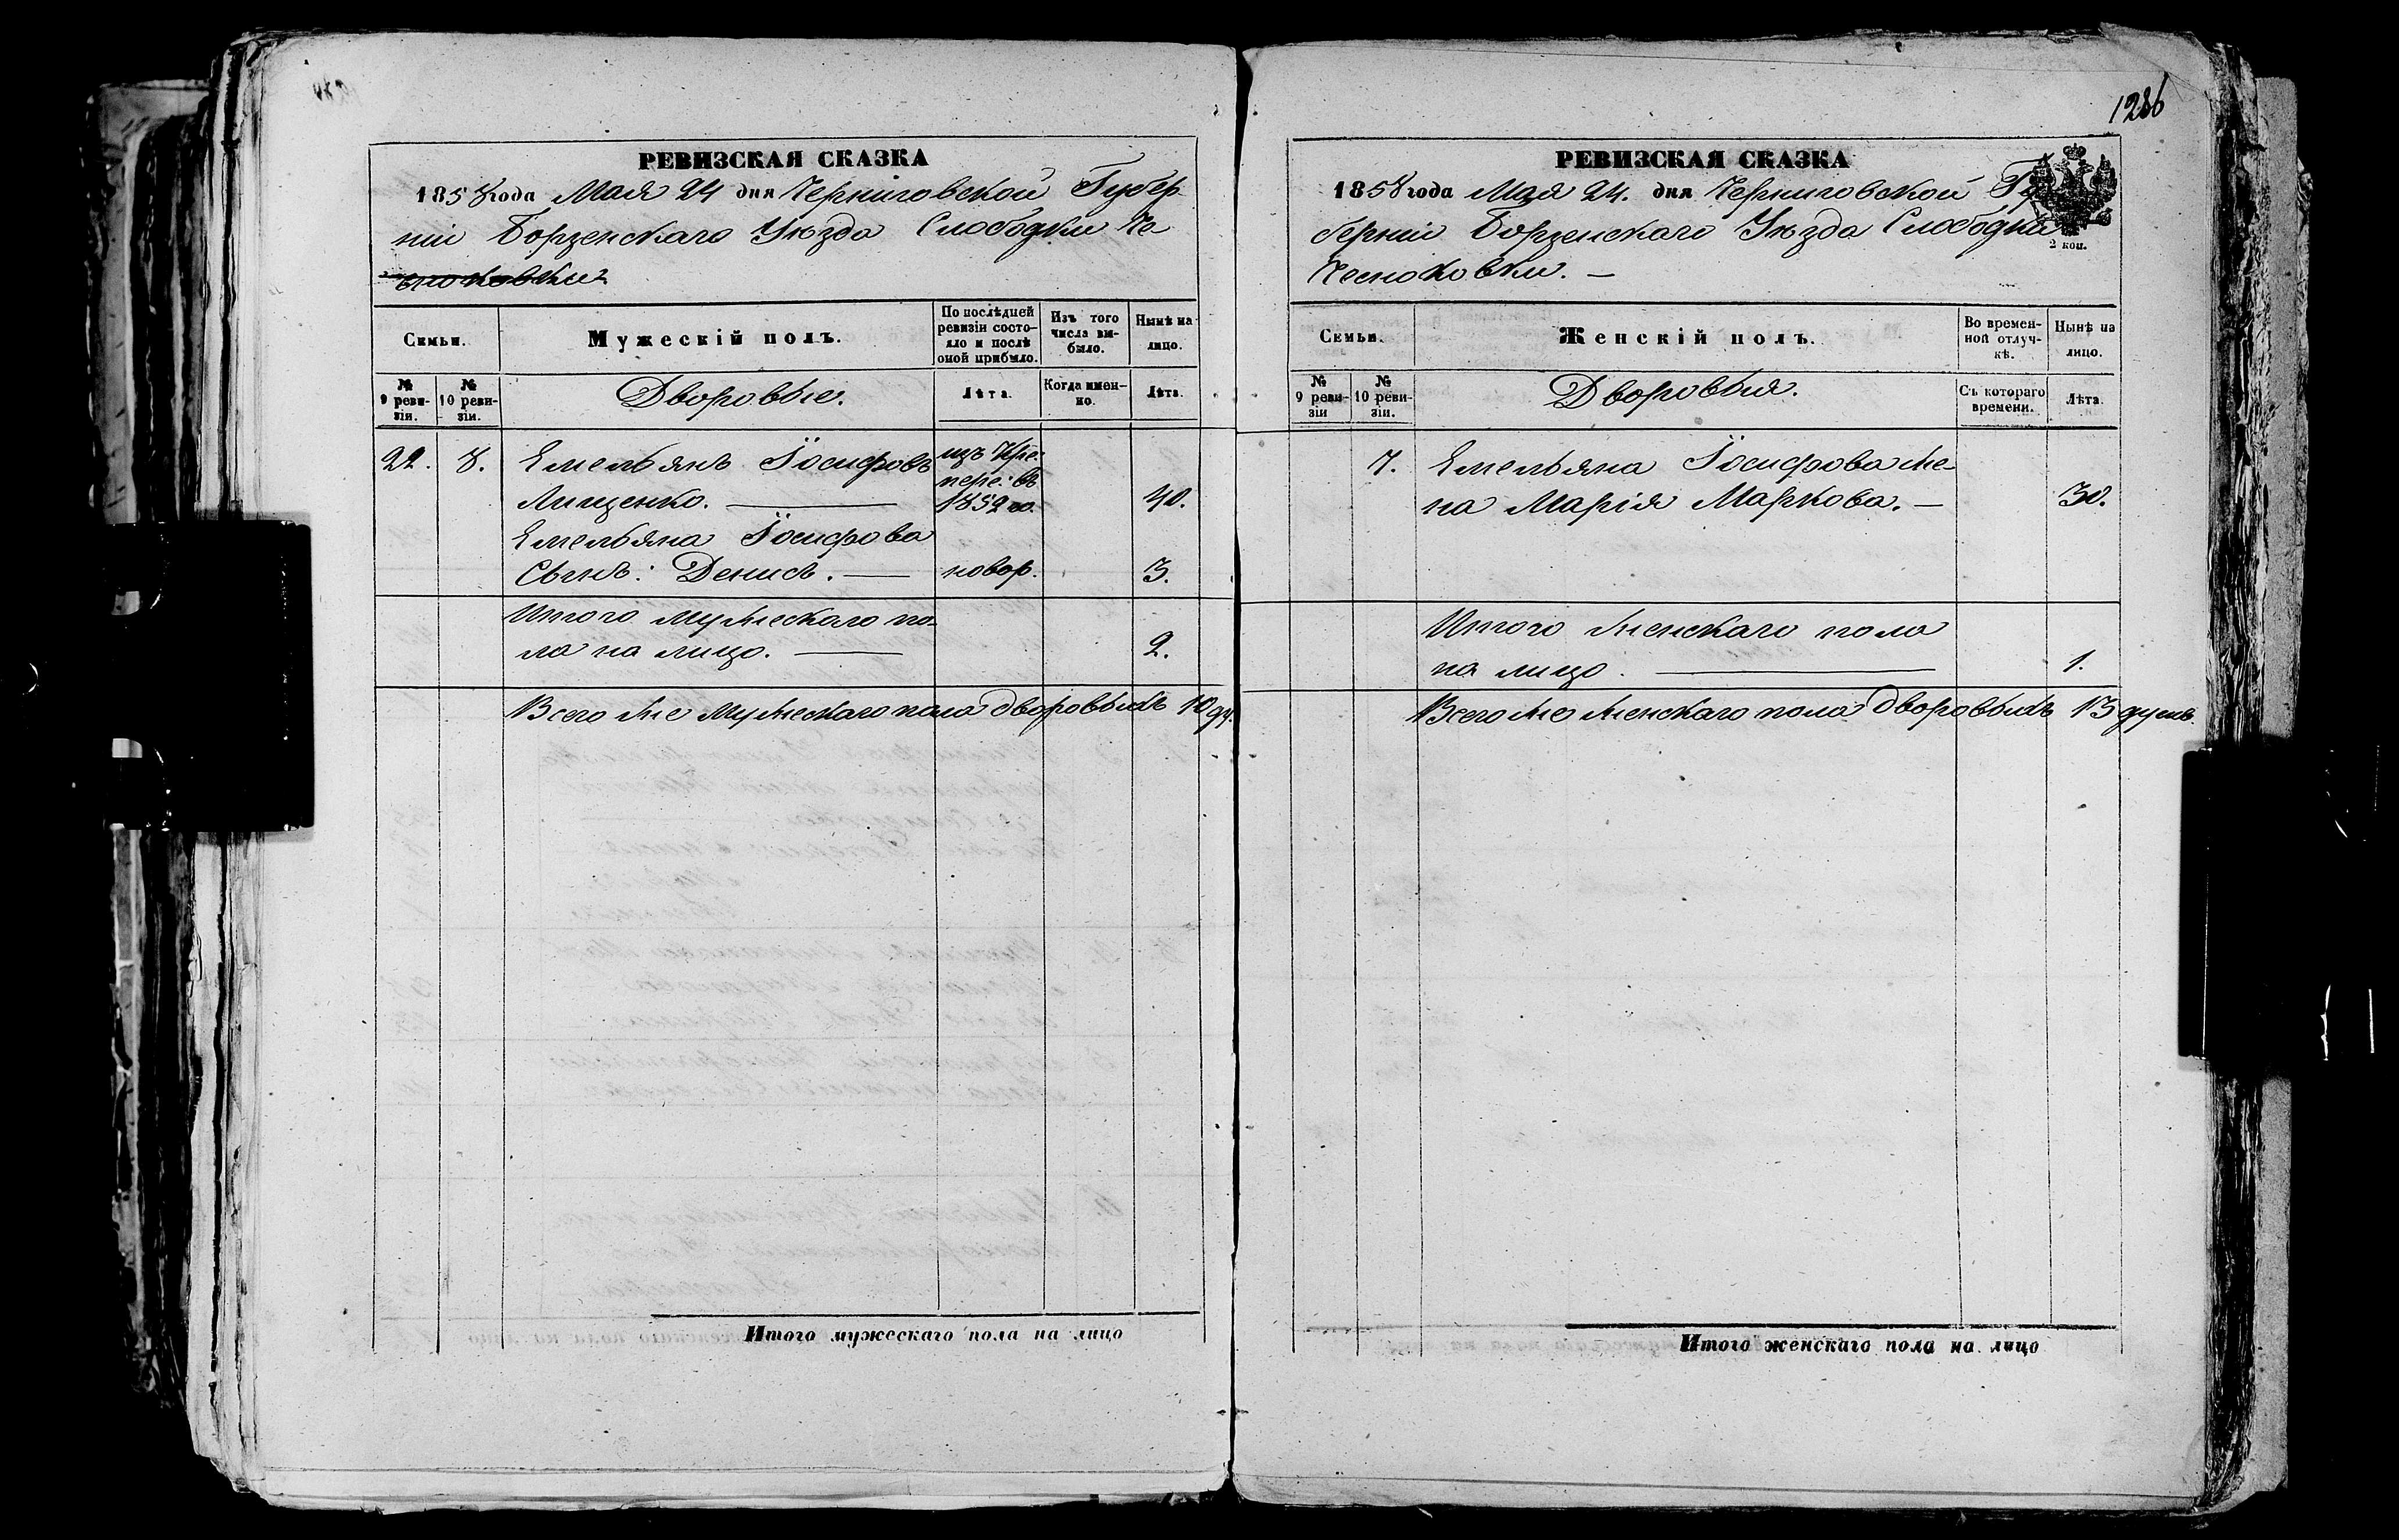 1286
РЕВИЗСКАЯ СКАЗКА
1858 года Мая 24 дня Черниговской Губер
ніи Борзенскаго Уѣзда Слободки Че
сноковки
Семьи.
Мужескій полъ.
По послѣдней ревизіи состо-
яло и послѣ оной прибыло.
Изъ того числа вы-
было.
Нынѣ на лицо.
№ 9 реви-
зіи.
№ 10 реви-
зіи.
Дворовые.
Лѣта.
Когда имен-
но.
Лѣта.
22. 8. Емельянъ Іосифовъ изъ Кре:
пере: въ
Лищенко. — 1852 го. 40.
Емельяна Іосифова
Сынъ: Денисъ. — новор. 3.
Итого мужескаго по-
ла на лицо. — 2.
Всего же мужескаго пола дворовыхъ 10 ду.
Итого мужескаго пола на лицо
РЕВИЗСКАЯ СКАЗКА
1858 года Мая 24. дня Черниговской Гу
берніи Борзенскаго Уѣзда Слободки
2 коп.
Чесноковки. —
Семьи.
Женскій полъ.
Во времен-
ной отлуч-
кѣ.
Нынѣ на лицо.
№ 9 реви-
зіи
№ 10 реви-
зіи.
Дворовыя.
Съ котораго времени.
Лѣта.
7. Емельяна Іосифова же-
на Марія Маркова. — 30.
Итого женскаго пола
на лицо. — 1.
Всего же женскаго пола дворовыхъ 13 душъ.
Итого женскаго пола на лицо